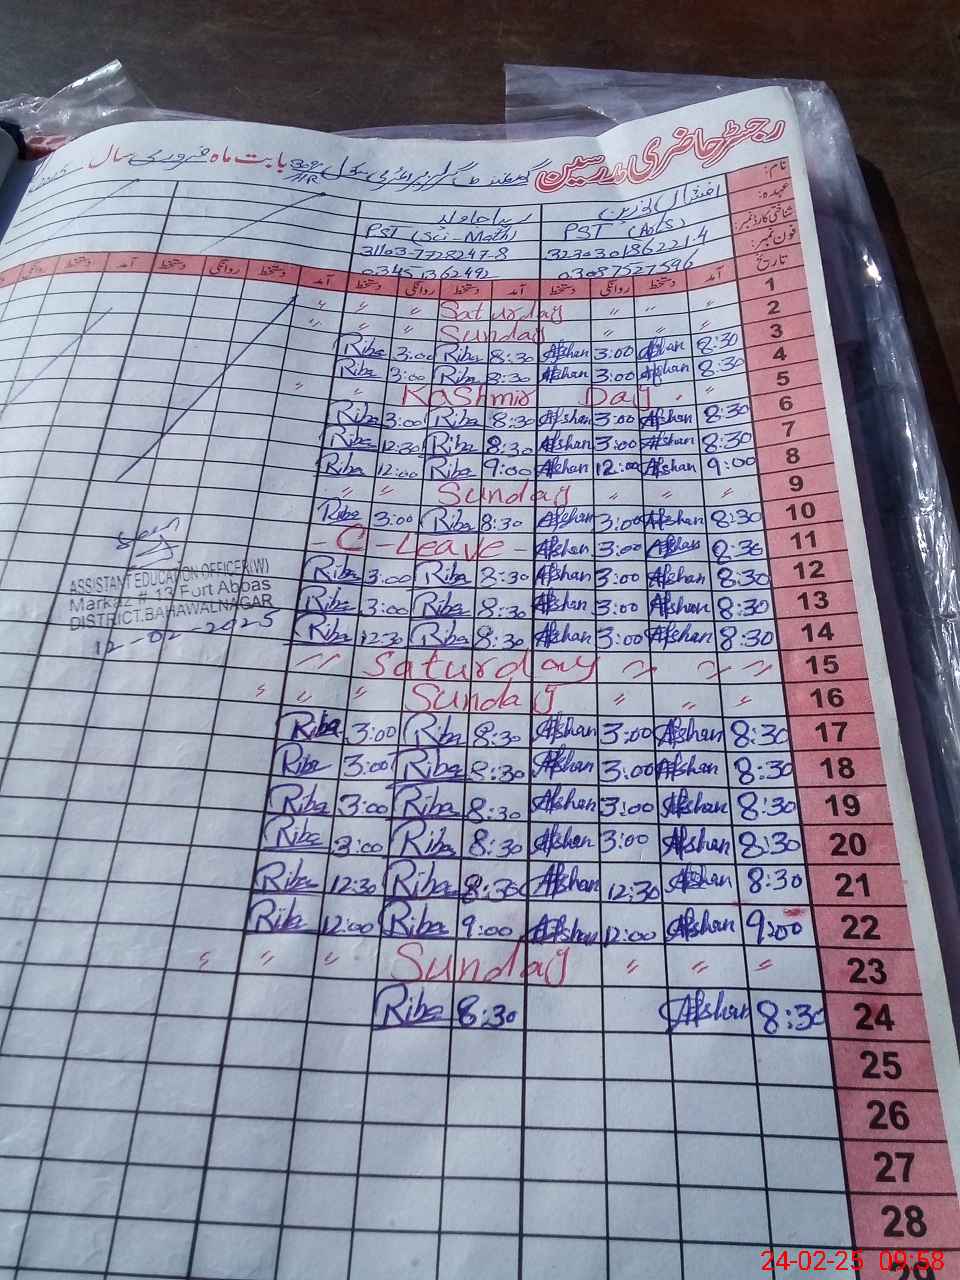 رجسٹر حاضری مدرسین گورنمنٹ گرلز پرائمری سکول 309/HR بابت ماہ فروری سال
نام: افشاں نورین
عہدہ: PST (Arts) PST (Sci-Math)
شناختی کارڈ نمبر: 31103-7728247-8
فون نمبر: 03087527596 03451362492
تاریخ آمد دستخط روانگی دستخط آمد دستخط روانگی دستخط آمد دستخط روانگی دستخط
1 〃 〃 〃 Saturday 〃 〃 〃
2 〃 〃 〃 Sunday 〃 〃 〃
3 8:30 Afshan 3:00 Afshan 8:30 Riba 3:00 Riba
4 8:30 Afshan 3:00 Afshan 8:30 Riba 3:00 Riba
5 〃 Kashmir Day 〃 〃
6 8:30 Afshan 3:00 Afshan 8:30 Riba 3:00 Riba
7 8:30 Afshan 3:00 Afshan 8:30 Riba 12:30 Riba
8 9:00 Afshan 12:00 Afshan 9:00 Riba 12:00 Riba
9 〃 〃 Sunday 〃 〃 〃
10 8:30 Afshan 3:00 Afshan 8:30 Riba 3:00 Riba
11 8:30 Afshan 3:00 Afshan - C - Leave -
12 8:30 Afshan 3:00 Afshan 8:30 Riba 3:00 Riba
13 8:30 Afshan 3:00 Afshan 8:30 Riba 3:00 Riba
14 8:30 Afshan 3:00 Afshan 8:30 Riba 12:30 Riba
15 〃 Saturday 〃 〃 〃
16 〃 〃 〃 Sunday 〃 〃 〃
17 8:30 Afshan 3:00 Afshan 8:30 Riba 3:00 Riba
18 8:30 Afshan 3:00 Afshan 8:30 Riba 3:00 Riba
19 8:30 Afshan 3:00 Afshan 8:30 Riba 3:00 Riba
20 8:30 Afshan 3:00 Afshan 8:30 Riba 3:00 Riba
21 8:30 Afshan 12:30 Afshan 8:30 Riba 12:30 Riba
22 9:00 Afshan 12:00 Afshan 9:00 Riba 12:00 Riba
23 〃 〃 〃 Sunday 〃 〃 〃
24 8:30 Afshan 8:30 Riba
25
26
27
28
seen
ASSISTANT EDUCATION OFFICER(W)
Markaz # 13 Fort Abbas
DISTRICT.BAHAWALNAGAR
12-02-2025
24-02-25 09:58